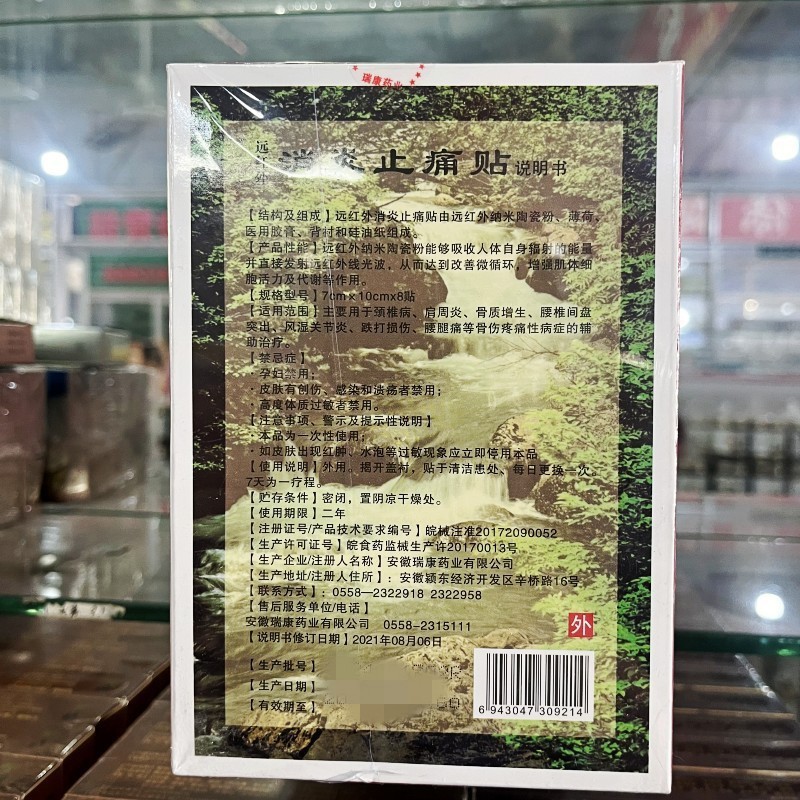 瑞康药业
远红外
消炎止痛贴说明书
【结构及组成】远红外消炎止痛贴由远红外纳米陶瓷粉、薄荷、
医用胶膏、背衬和硅油纸组成。
【产品性能】远红外纳米陶瓷粉能够吸收人体自身辐射的能量
并直接发射远红外线光波，从而达到改善微循环，增强肌体细
胞活力及代谢等作用。
【规格型号】7cm×10cmx8贴
【适用范围】主要用于颈椎病、肩周炎、骨质增生、腰椎间盘
突出、风湿关节炎、跌打损伤、腰腿痛等骨伤疼痛性病症的辅
助治疗。
【禁忌症】
·孕妇禁用；
·皮肤有创伤、感染和溃疡者禁用；
·高度体质过敏者禁用。
【注意事项、警示及提示性说明】
·本品为一次性使用；
·如皮肤出现红肿、水泡等过敏现象应立即停用本品
【使用说明】外用。揭开盖衬，贴于清洁患处、每日更换一次。
7天为一疗程。
【贮存条件】密闭，置阴凉干燥处。
【使用期限】二年
【注册证号/产品技术要求编号】皖械注准20172090052
【生产许可证号】皖食药监械生产许20170013号
【生产企业/注册人名称】安徽瑞康药业有限公司
【生产地址/注册人住所】：安徽颍东经济开发区辛桥路16号
【联系方式】：0558—2322918 2322958
【售后服务单位/电话】
安徽瑞康药业有限公司 0558-2315111
【说明书修订日期】2021年08月06日
外
【生产批号】
【生产日期】
【有效期至】
6 943047 309214